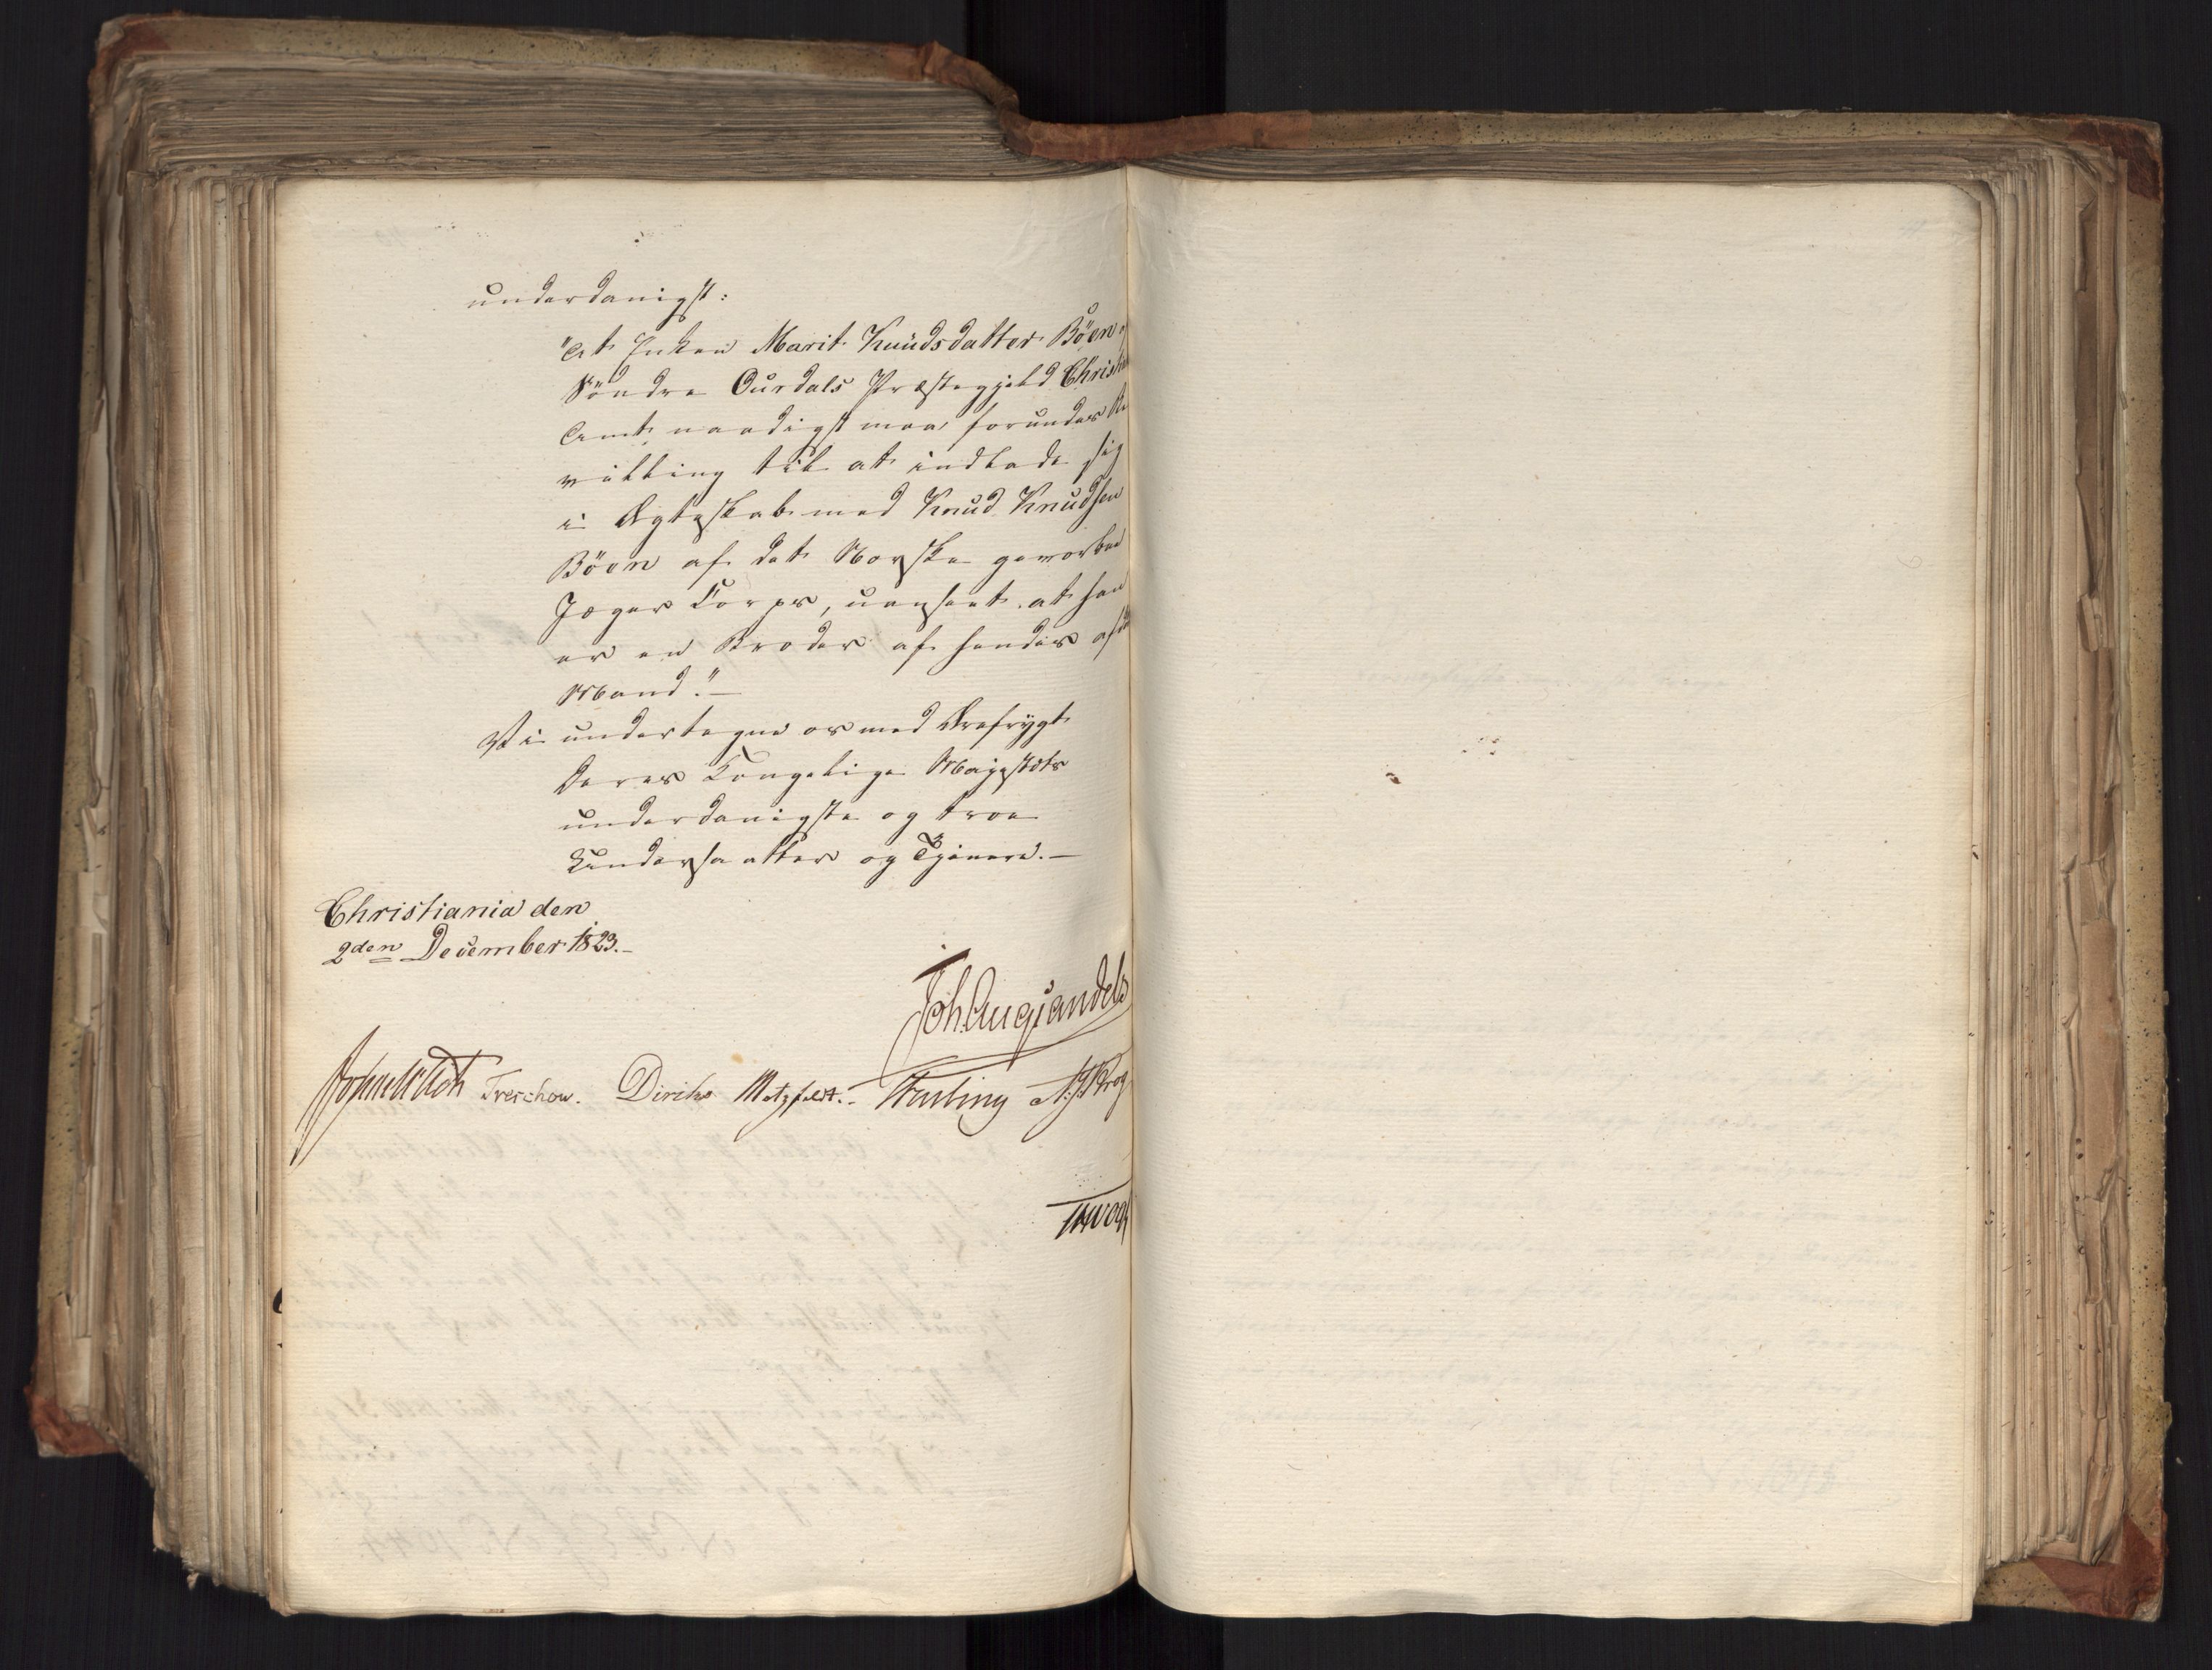 underdanigst:
"At Enken Marit Knudsdatter Böen
Söndre Ourdals Præstegjeld Christi
Amt, naadigst maa forundes Be
villing til at indlade sig
i Ægteskab med Knud Knudsen
Böen af det Norske gevorbne
Jæger Corps, uanseet at han
er en Broder af hendes afd
Mand."—
Vi undertegne os med Ærefrygt
Deres Kongelige Majestæts
underdanigste og troe
Undersaatter og Tjenere.—
Christiania den
2den December 1823.—
Joh. Aug. Sandels
Treschow. Diriks Motzfeldt.